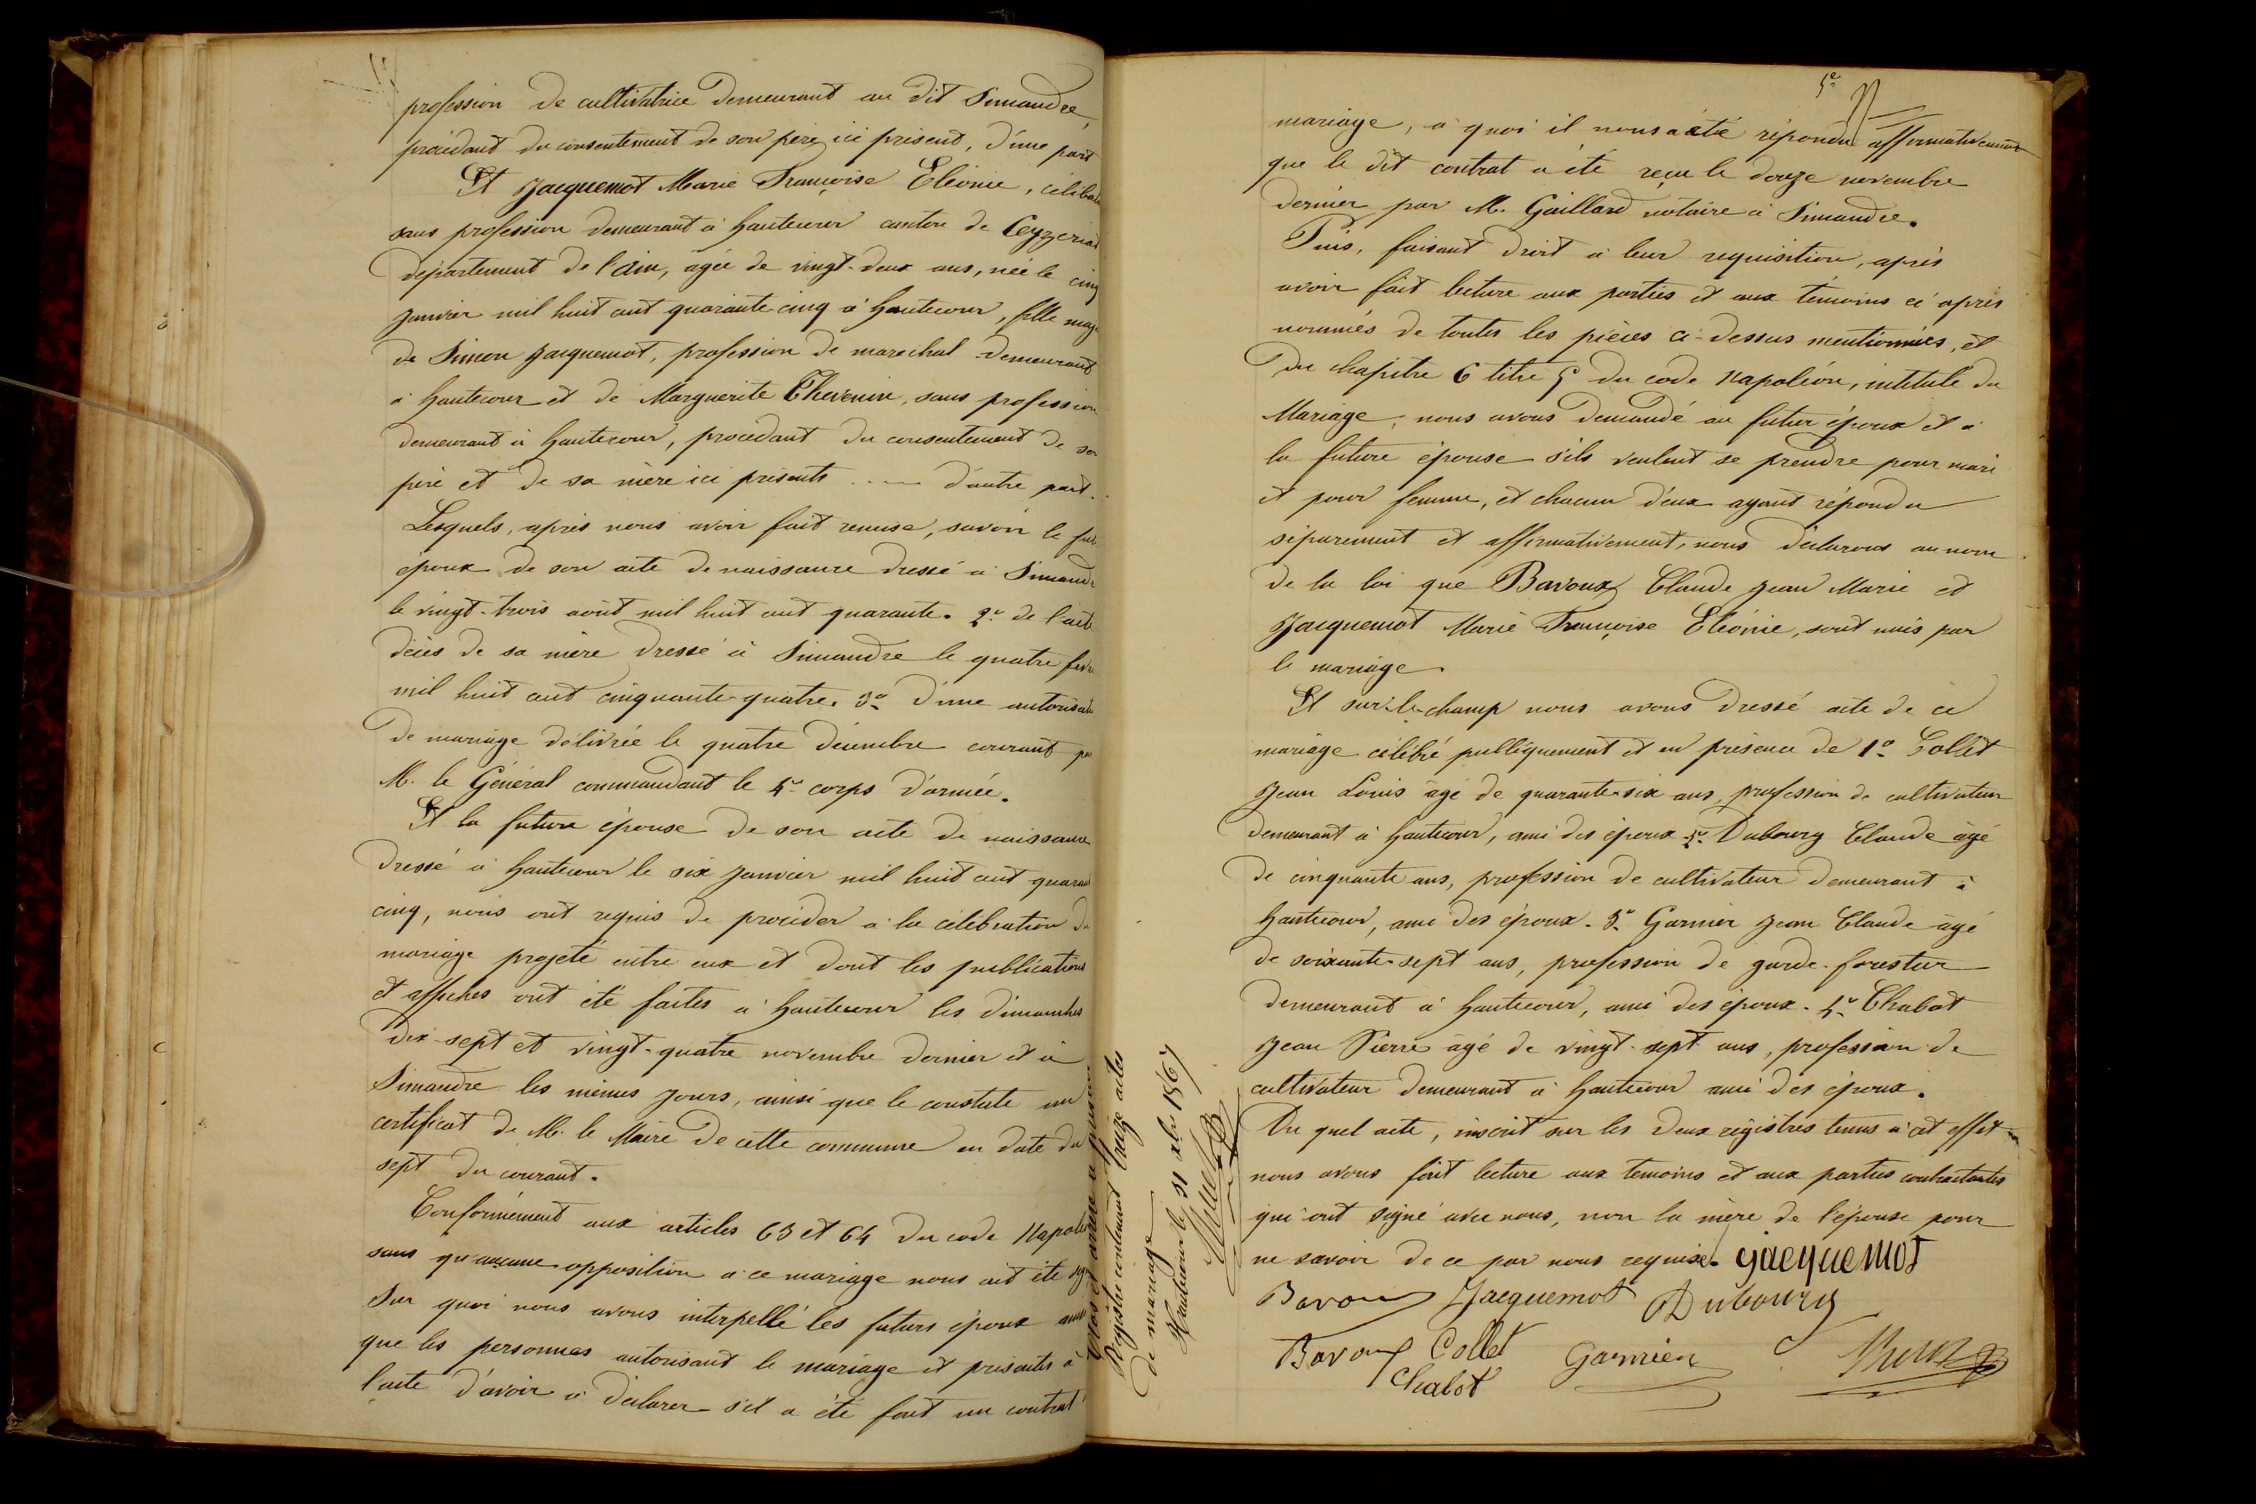 profession de cultivatrice demeurant au dit Simandre,
procédant du consentement de son père ici présent, d'une part
Et Jacquemot Marie Françoise Eléonie, céliba
sans profession demeurant à hautecour canton de Ceyzeriat
département de l'ain, âgée de vingt-deux ans, née le cinq
janvier mil huit cent quarante cinq à hautecour, fille maj
de Simeon Jacquemot, profession de marechal demeurant
à hautecour et de Marguerite Thevenin, sans profession
demeurant à hautecour, procédant du consentement de son
père et de sa mère ici présents .... d'autre part.
Lesquels, après nous avoir fait remise, savoir le fut
époux de son acte de naissance dressé à Simandre
le vingt-trois août mil huit cent quarante. 2º de l'acte
décès de sa mère dressé à Simandre le quatre fev
mil huit cent cinquante-quatre. 3º d'une autorisat
de mariage délivrée le quatre décembre courant par
M. le Général commandant le 4e corps d'armée.
Et la future épouse de son acte de naissance
dressé à hautecour le six janvier mil huit cent quarant
cinq, nous ont requis de procéder à la célébration du
mariage projeté entre eux et dont les publications
et affiches ont été faites à hautecour les dimanches
dix-sept et vingt-quatre novembre dernier et à
Simandre les mêmes jours, ainsi que le constate un
certificat de M. le Maire de cette commune en date du
sept du courant.
Conformément aux articles 63 et 64 du code Napolé
sans qu'aucune opposition à ce mariage nous ait été sig
Sur quoi nous avons interpellé les futurs époux ains
que les personnes autorisant le mariage et présentes à
l'acte d'avoir à déclarer s'il a été fait un contrat
Registre contenant treize actes
de mariage
Hautecour le 31 xbre 1867
5e
mariage, à quoi il nous a été répondu affirmativement
que le dit contrat a été reçu le douze novembre
dernier par M. Gaillard notaire à Simandre.
Puis, faisant droit à leur requisition, après
avoir fait lecture aux parties et aux témoins ci après
nommés de toutes les pièces ci-dessus mentionnées, et
du chapitre 6 titre 5 du code Napoléon, intitulé du
Mariage, nous avons demandé au futur époux et à
la future épouse s'ils veulent se prendre pour mari
et pour femme, et chacun d'eux ayant répondu
séparement et affirmativement, nous déclarons au nom
de la loi que Bavoux Claude Jean Marie et
Jacquemot Marie Françoise Eléonie, sont unis par
le mariage.
Et sur-le-champ nous avons dressé acte de ce
mariage célébré publiquement et en présence de 1º Collet
Jean Louis âgé de quarante-six ans, profession de cultivateur
demeurant à hautecour, ami des époux 2º Dubourg Claude âgé
de cinquante ans, profession de cultivateur demeurant à
hautecour, ami des époux. 3º Garnier Jean Claude âgé
de soixante-sept ans, profession de garde-forestier
demeurant à hautecour, ami des époux. 4º Chabot
Jean Pierre âgé de vingt-sept ans, profession de
cultivateur demeurant à hautecour ami des époux.
Du quel acte, inscrit sur les deux régistres tenus à cet effet
nous avons fait lecture aux temoins et aux parties contractantes
qui ont signé avec nous, non la mère de l'épouse pour
ne savoir de ce par nous requise. Jacquemot
Bavoux Jacquemot Dubourg
Bavoux Collet Garnier
Chabot